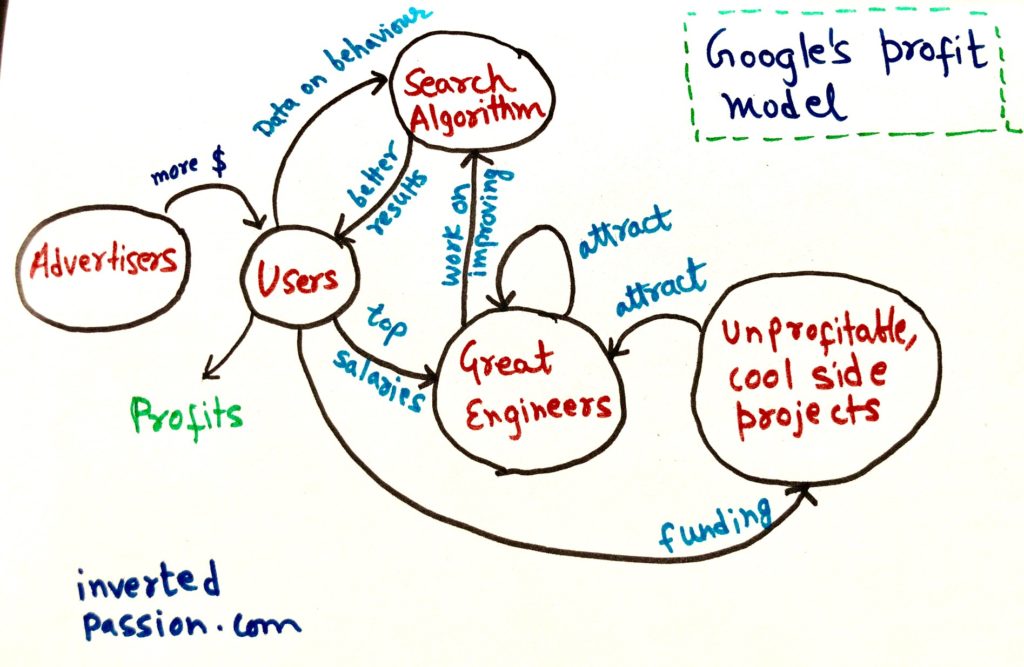 Google's profit
model
Data on behaviour
Search
Algorithm
more $
better
results
work on
improving
attract
attract
Advertisers
Users
top
salaries
Great
Engineers
Unprofitable,
cool side
projects
Profits
funding
inverted
passion.com